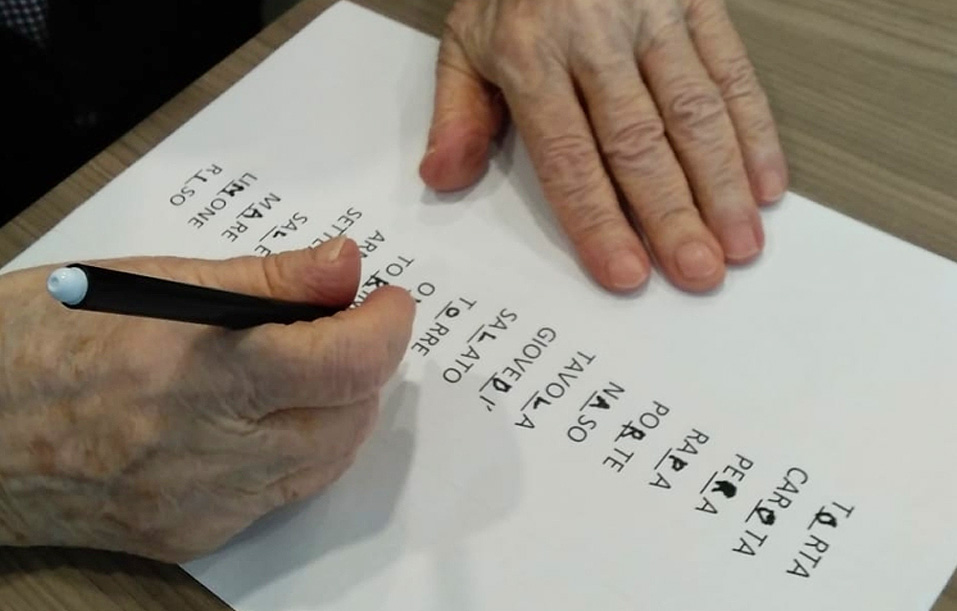 TORTA
CAROTA
PERA
RAPA
PORTE
NASO
TAVOLA
GIOVEDI'
SALATO
TORRE
SALE
MARE
LIMONE
RISO